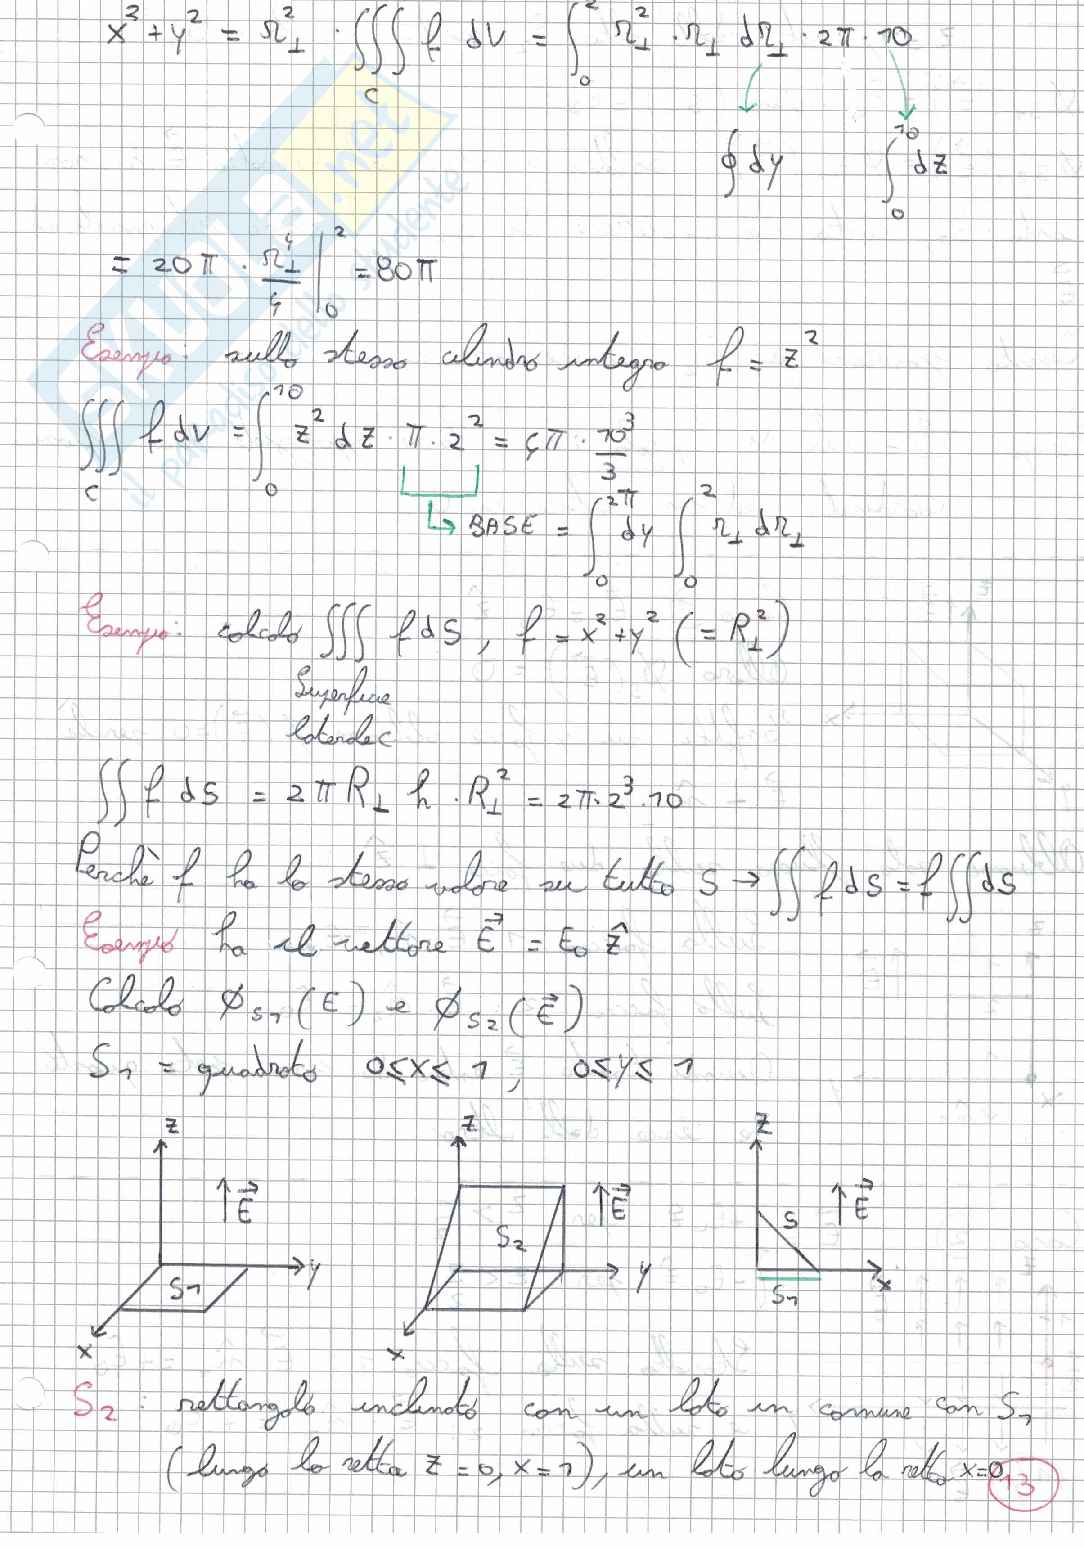 x² + y² = r⊥² · ∭_C f dV = ∫₀² r⊥² · r⊥ dr⊥ · 2π · 10
∮ dγ   ∫₀¹⁰ dz
= 20π · r⊥⁴/4 |₀² = 80π
Esempio: sullo stesso cilindro integro f = z²
∭_C f dV = ∫₀¹⁰ z² dz · π · 2² = 4π · 10³/3
BASE = ∫₀²π dγ ∫₀² r⊥ dr⊥
Esempio: calcolo ∭ f dS, f = x² + y² (= R⊥²)
Superficie
laterale C
∬ f dS = 2π R⊥ h · R⊥² = 2π · 2³ · 10
Perchè f ha lo stesso valore su tutto S → ∬ f dS = f ∬ dS
Esempio ho il vettore E⃗ = E₀ ẑ
Calcolo ϕ_S₁(E) e ϕ_S₂(E⃗)
S₁ = quadrato 0≤x≤1, 0≤y≤1
z z z
E⃗ E⃗ E⃗
S₂ S
S₁ y y x
S₁
x x
S₂: rettangolo inclinato con un lato in comune con S₁
(lungo la retta z=0, x=1), un lato lungo la retta x=0
13
skuola.net
il paradiso dello studente